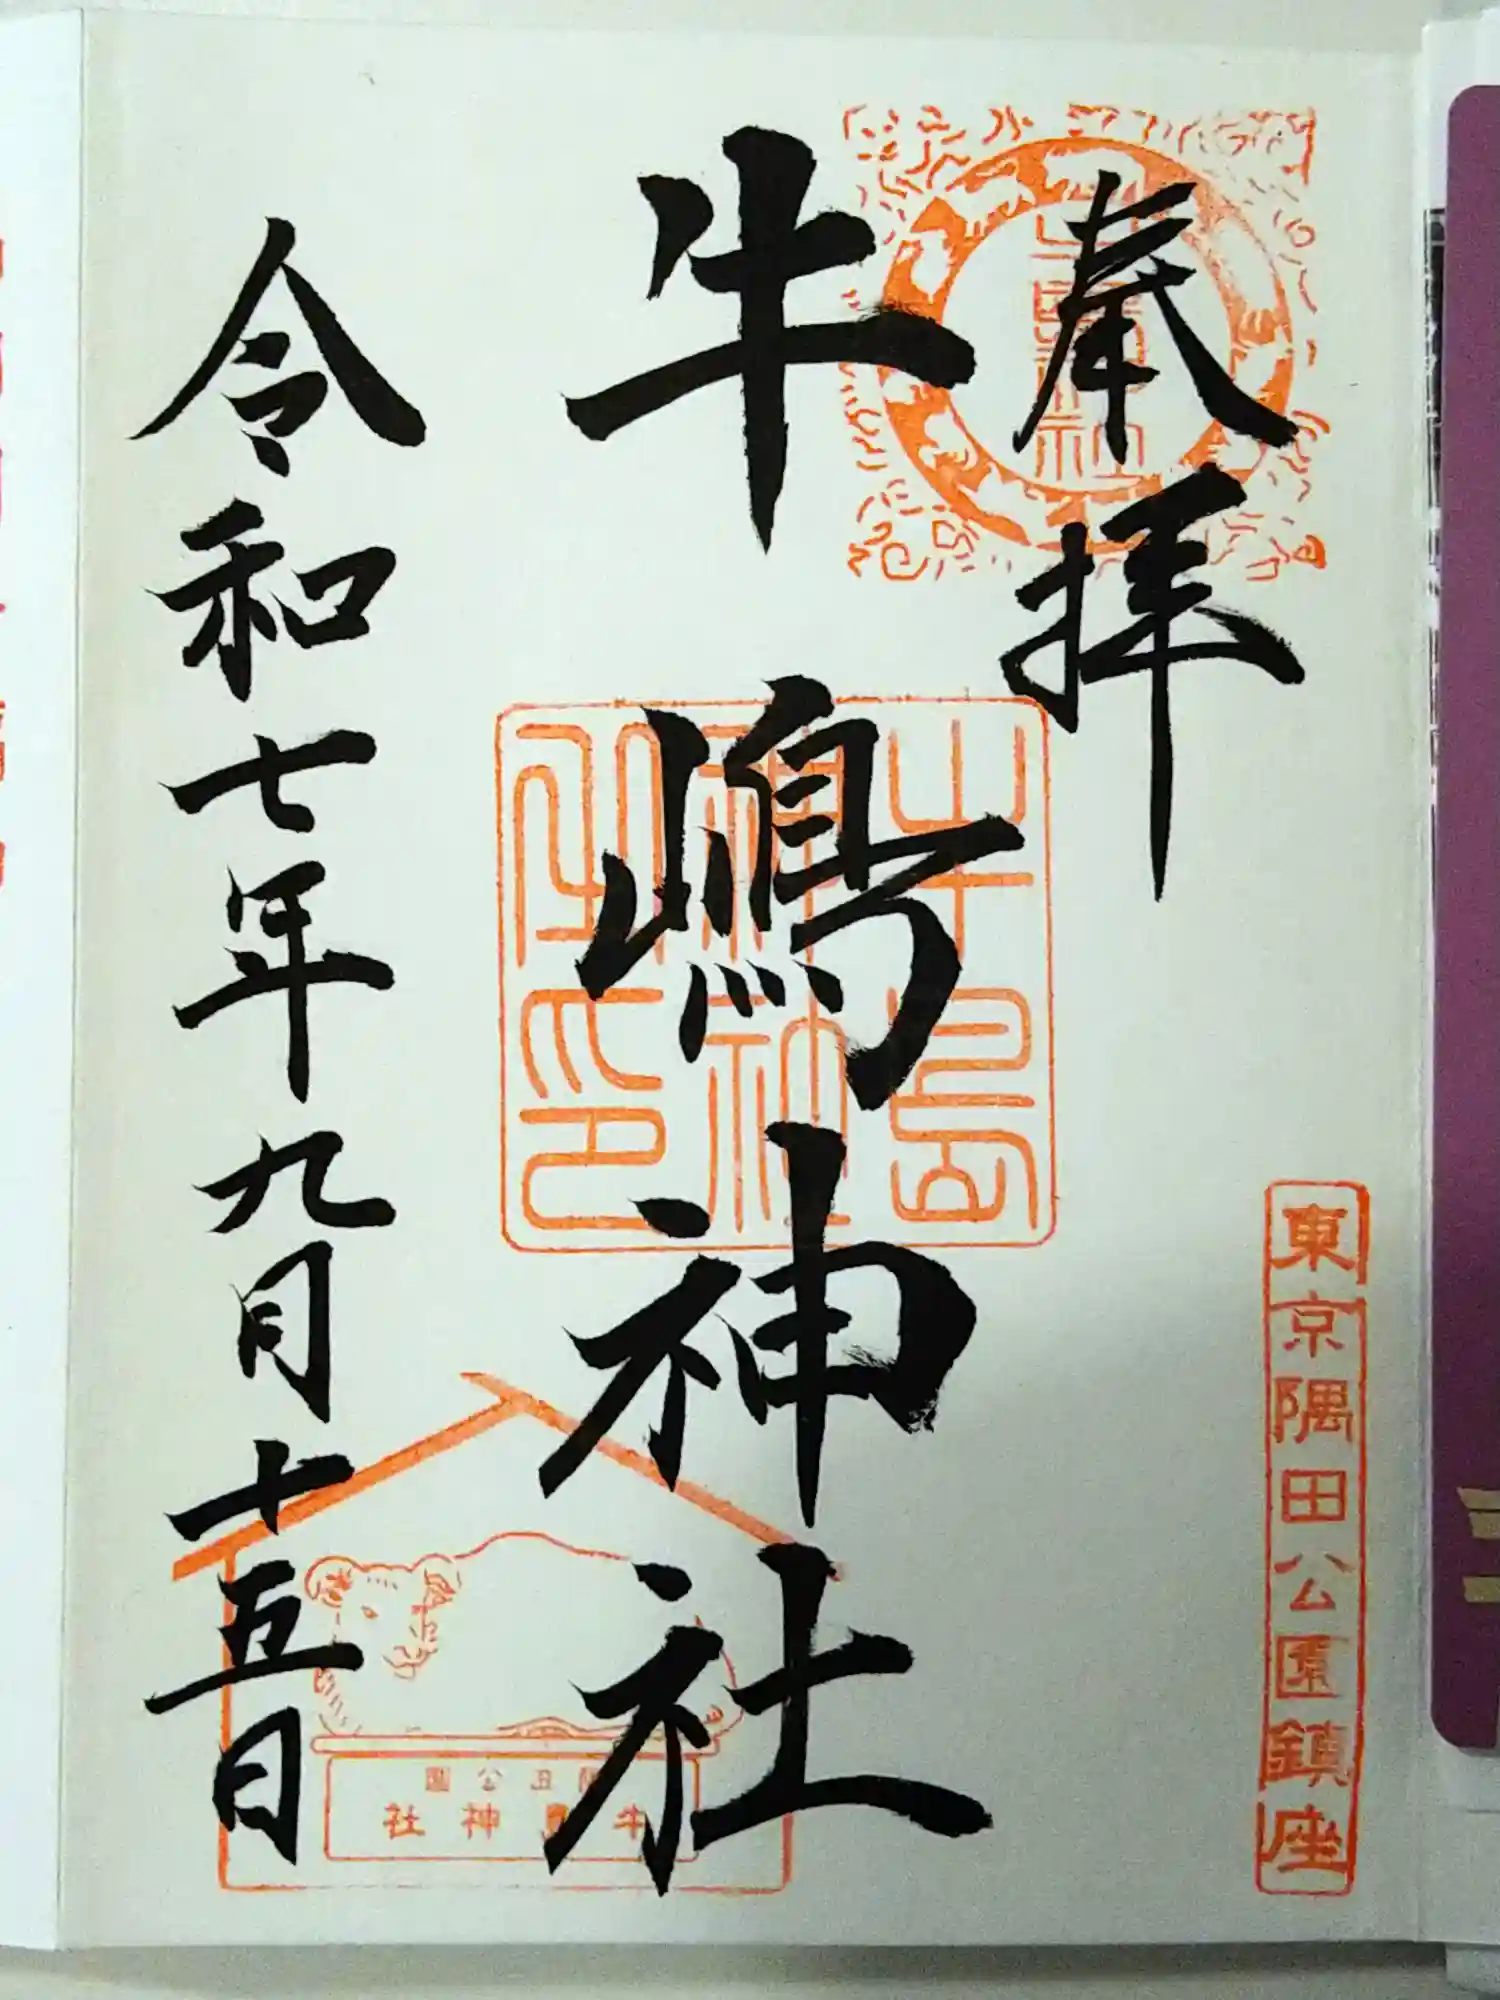 奉拝
東京隅田公園鎮座
牛嶋神社
牛島神社之印
令和七年九月十五日
牛島神社